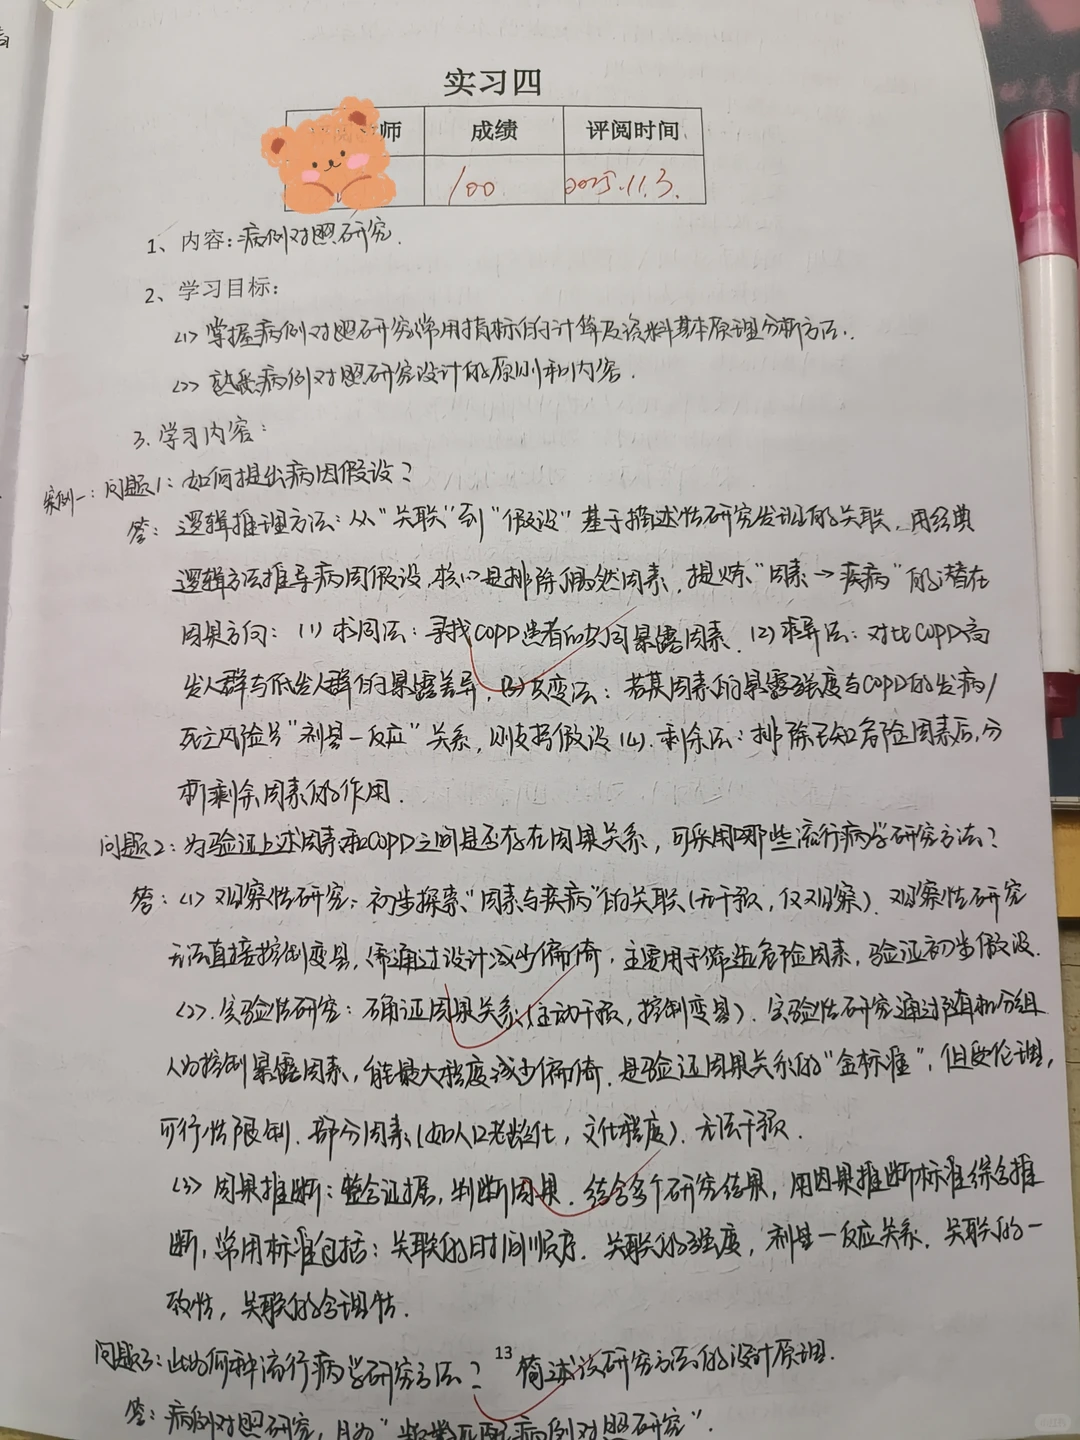 实习四
师 成绩 评阅时间
100 2025.11.3.
1、内容:病例对照研究.
2、学习目标:
(1) 掌握病例对照研究常用指标的计算及资料基本原理分析方法.
(2) 熟悉病例对照研究设计的原则和内容.
3.学习内容:
案例一:问题1:如何提出病因假设?
答:逻辑推理方法:从“关联”到“假设”基于描述性研究发现的关联,用经典
逻辑方法推导病因假设,核心是排除偶然因素,提炼“因素→疾病”的潜在
因果方向:(1)求同法:寻找COPD患者的共同暴露因素.(2)求异法:对比COPD高
发人群与低发人群的暴露差异.(3)共变法:若某因素的暴露强度与COPD的发病/
死亡风险呈“剂量-反应”关系,则支持假设(4).剩余法:排除已知危险因素后,分
析剩余因素的作用.
问题2:为验证上述因素和COPD之间是否存在因果关系,可采用哪些流行病学研究方法?
答:(1)观察性研究:初步探索“因素与疾病”的关联(无干预,仅观察).观察性研究
无法直接控制变量,需通过设计减少偏倚,主要用于筛选危险因素,验证初步假设.
(2).实验性研究:确证因果关系(主动干预,控制变量).实验性研究通过随机分组
人为控制暴露因素,能最大程度减少偏倚.是验证因果关系的“金标准”,但受伦理,
可行性限制.部分因素(如人口老龄化,文化程度).无法干预.
(3)因果推断:整合证据,判断因果.结合多个研究结果,用因果推断标准综合推
断,常用标准包括:关联的时间顺序.关联的强度,剂量-反应关系.关联的一
致性,关联的合理性.
问题3:此为何种流行病学研究方法?简述该研究方法的设计原理.
13
答:病例对照研究,且为“频数匹配病例对照研究”.